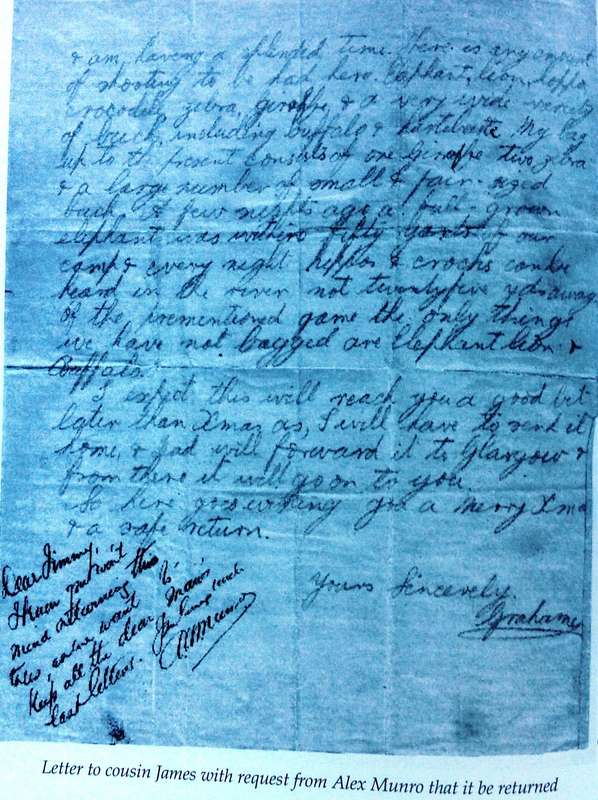 & am having a splended time. There is any amount
of shooting to be had here. Elephant, lion, hippo
crocodile zebra, giraffe, & a very wide variety
of buck, including buffalo & hartebeeste. My bag
up to the present consists of one Giraffe two zebra
& a large number of small & fair-sized
buck. A few nights ago a full-grown
elephant was within fifty yards of our
camp & every night hippos & crocks can be
heard in the river not twentyfive yds away.
Of the forementioned game the only things
we have not bagged are Elephant lion &
Buffalo.
I expect this will reach you a good bit
later than Xmas as, I will have to send it
home, & Dad will forward it to Glasgow &
from there it will go on to you.
So here goes wishing you a Merry Xmas
& a safe return.
Yours Sincerely.
Grahame
Dear Jimmy,
I know you won't
mind returning this
keep all the dear
last letters.
A Munro
Letter to cousin James with request from Alex Munro that it be returned